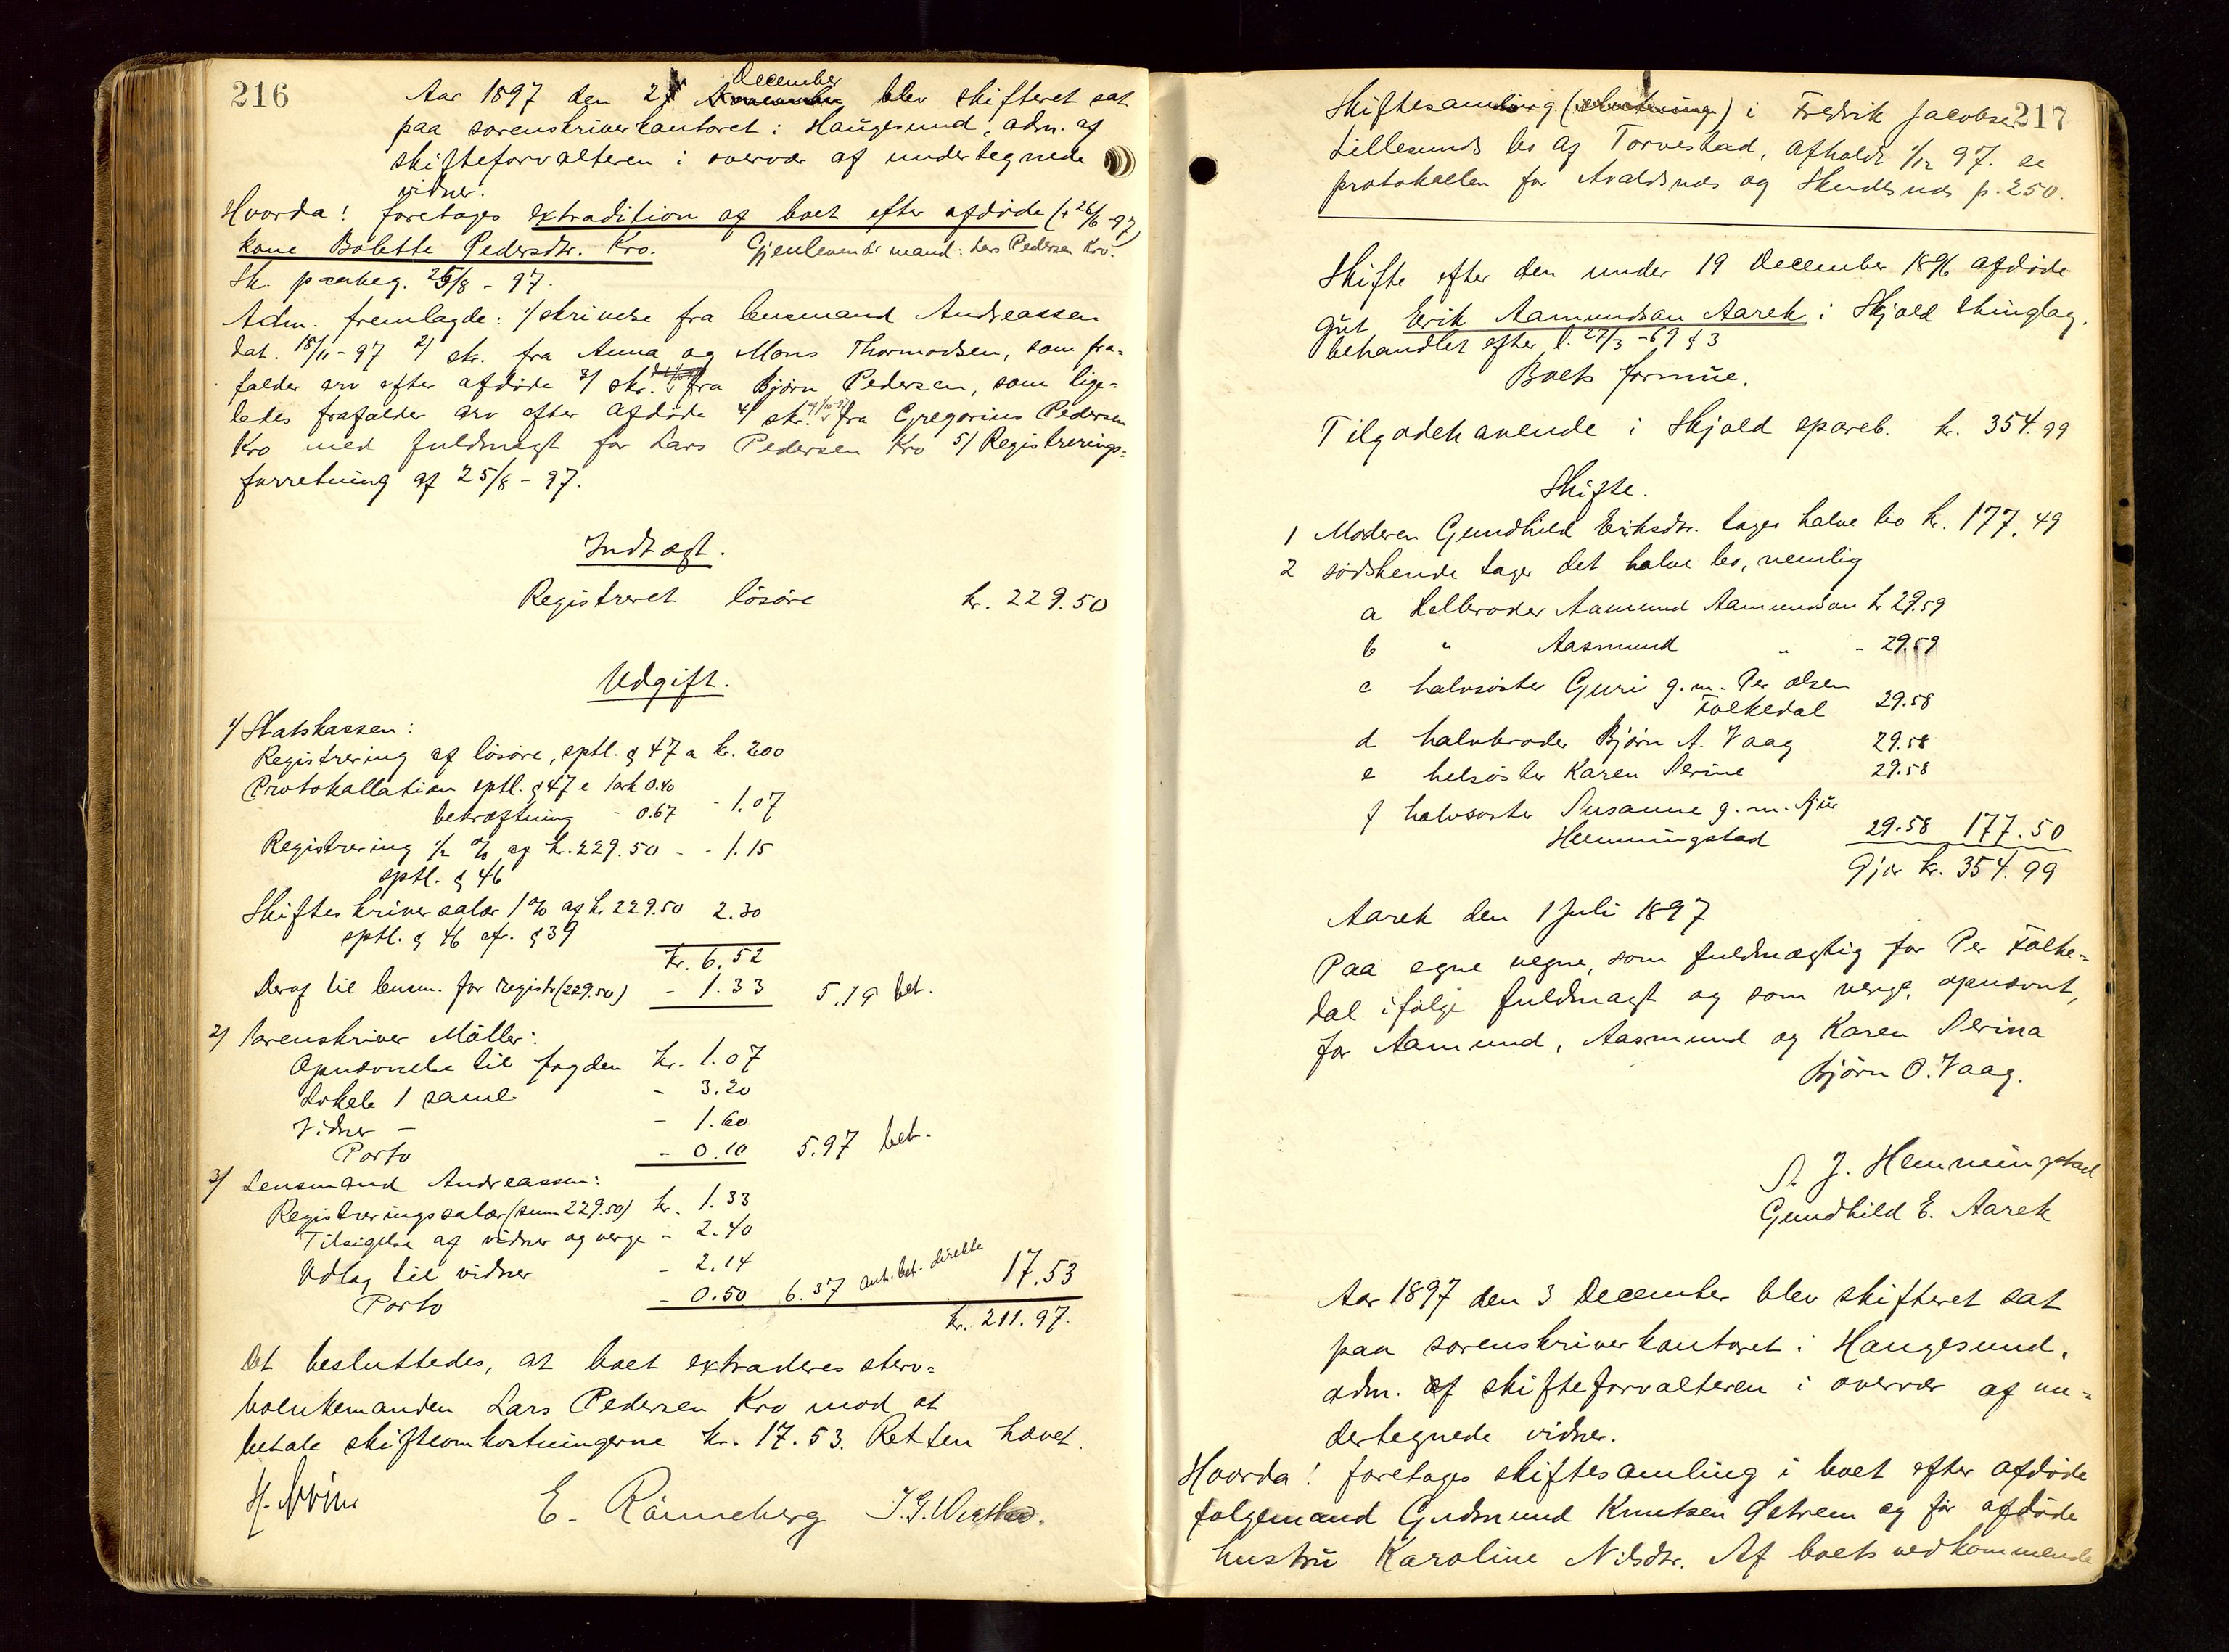 216
Aar 1897 den 2 December blev skifteret sat
paa sorenskriverkontoret i Haugesund, adm. af
skifteforvalteren i overvær af undertegnede
vidner.
Hvorda! foretoges extradition af boet efter afdøde († 26/6-97)
kone Bolette Pedersdtr. Kro. Gjenlevende mand: Lars Pedersen Kro.
Sk. paabeg. 25/8 - 97.
Adm. fremlagde: 1/ skrivelse fra lensmand Andreassen
dat. 18/11-97 2/ skr. fra Anna og Mons Thormodsen, som fra-
falder arv efter afdøde 3/ skr. fra Bjørn Pedersen, som lige-
ledes frafalder arv efter afdøde 4/ skr. fra Gregorius Pedersen
Kro med fuldmagt for Lars Pedersen Kro 5/ Registrerings-
forretning af 25/8 - 97.
Indtægt.
Registreret løsøre kr. 229.50
Udgift.
1/ Statskassen:
Registrering af løsøre, sptl. § 47 a kr. 200
Protokollation sptl. § 47 e 1 ark 0.40
bekræftning - 0.67 - 1.07
Registrering ½ % af kr. 229.50 - - 1.15
sptl. § 46
Skifteskriversalær 1 % af kr 229.50 2.30
sptl. § 46 cfr. § 39
Kr. 6.52
Deraf til lensm. for registr (229.50) - 1.33 5.19 bet.
2/ Sorenskriver Møller:
Opnævnelse til fogden Kr. 1.07
Lokale 1 saml. - 3.20
Vidner - - 1.60
Porto - 0.10 5.97 bet.
3/ Lensmand Andreassen:
Registreringssalær (sum 229.50) kr. 1.33
Tilsigelse af vidner og verge - 2.40
Udlag til vidner - 2.14
Porto - 0.50 6.37 ant. bet. direkte 17.53
kr. 211.97.
Det besluttedes, at boet extraderes sterv-
boenkemanden Lars Pedersen Kro mod at
betale skifteomkostningerne kr. 17.53. Retten hævet.
E. Rönneberg
217
Skiftesamling i Fredrik Jacobsen
Lillesunds bo af Torvestad, afholdt 1/12 97. se
protokollen for Avaldsnes og Skudesnes p. 250.
Skifte efter den under 19 December 1896 afdøde
gut Erik Aamundsøn Aarek i Skjold thinglag.
behandlet efter l. 27/3 - 69 § 3
Boets formue.
Tilgodehavende i Skjold spareb. kr. 354.99
Skifte.
1 Moderen Gundhild Eriksdtr. tager halve bo kr. 177.49
2 sødskende tager det halve bo, nemlig
a Helbroder Aamund Aamundsøn kr 29.59
b " Aasmund " - 29.59
c halvsøster Guri g. m. Per Olsen
Folkedal 29.58
d halvbroder Bjørn A. Vaag 29.58
e helsøster Karen Serine 29.58
f halvsøster Susanne g. m. Sjur
Hemmingstad 29.58 177.50
Gjør kr. 354.99
Aarek den 1 Juli 1897
Paa egne vegne, som fuldmægtig for Per Folke-
dal ifølge fuldmagt og som verge, opnævnt,
for Aamund, Aasmund og Karen Serina
Bjørn O. Vaag.
S. J. Hemmingstad
Gundhild E. Aarek
Aar 1897 den 3 December blev skifteret sat
paa sorenskriverkontoret i Haugesund,
adm. af skifteforvalteren i overvær af un-
dertegnede vidner.
Hvorda! foretoges skiftesamling i boet efter afdøde
følgemand Gudmund Knutsen Østrem og før afdøde
hustru Karoline Nilsdtr. Af boets vedkommende